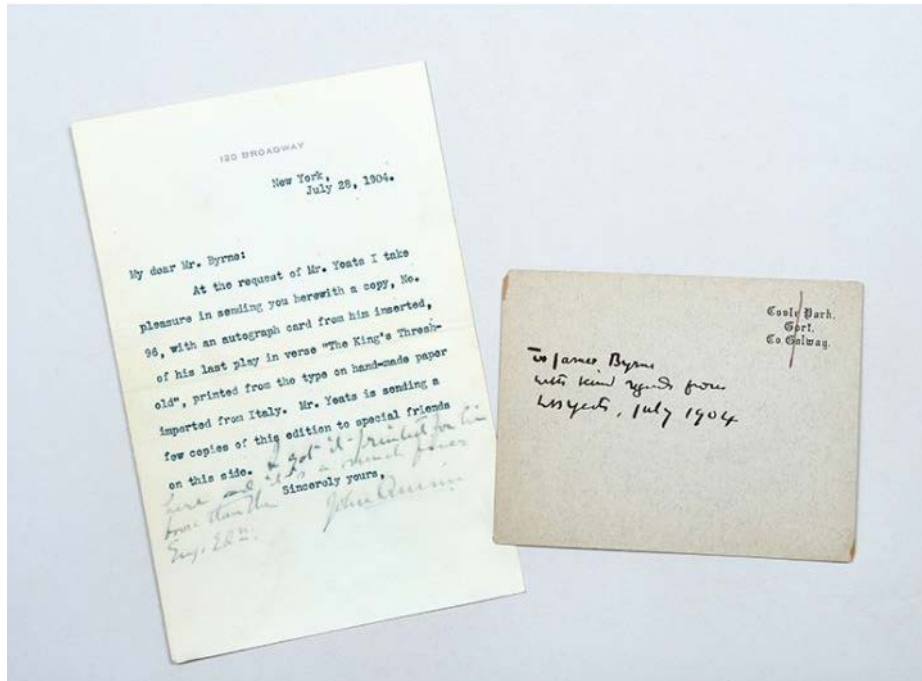 120 BROADWAY
New York,
July 28, 1904.
My dear Mr. Byrne:
At the request of Mr. Yeats I take
pleasure in sending you herewith a copy, No.
96, with an autograph card from him inserted,
of his last play in verse "The King's Thresh-
old", printed from the type on hand-made paper
imported from Italy. Mr. Yeats is sending a
few copies of this edition to special friends
on this side. I got it printed for him
here and it is a much finer
book than the
Eng. Edn.
Sincerely yours,
John Quinn
Coole Park,
Gort,
Co Galway.
To James Byrne
with kind regards from
WBYeats, July 1904